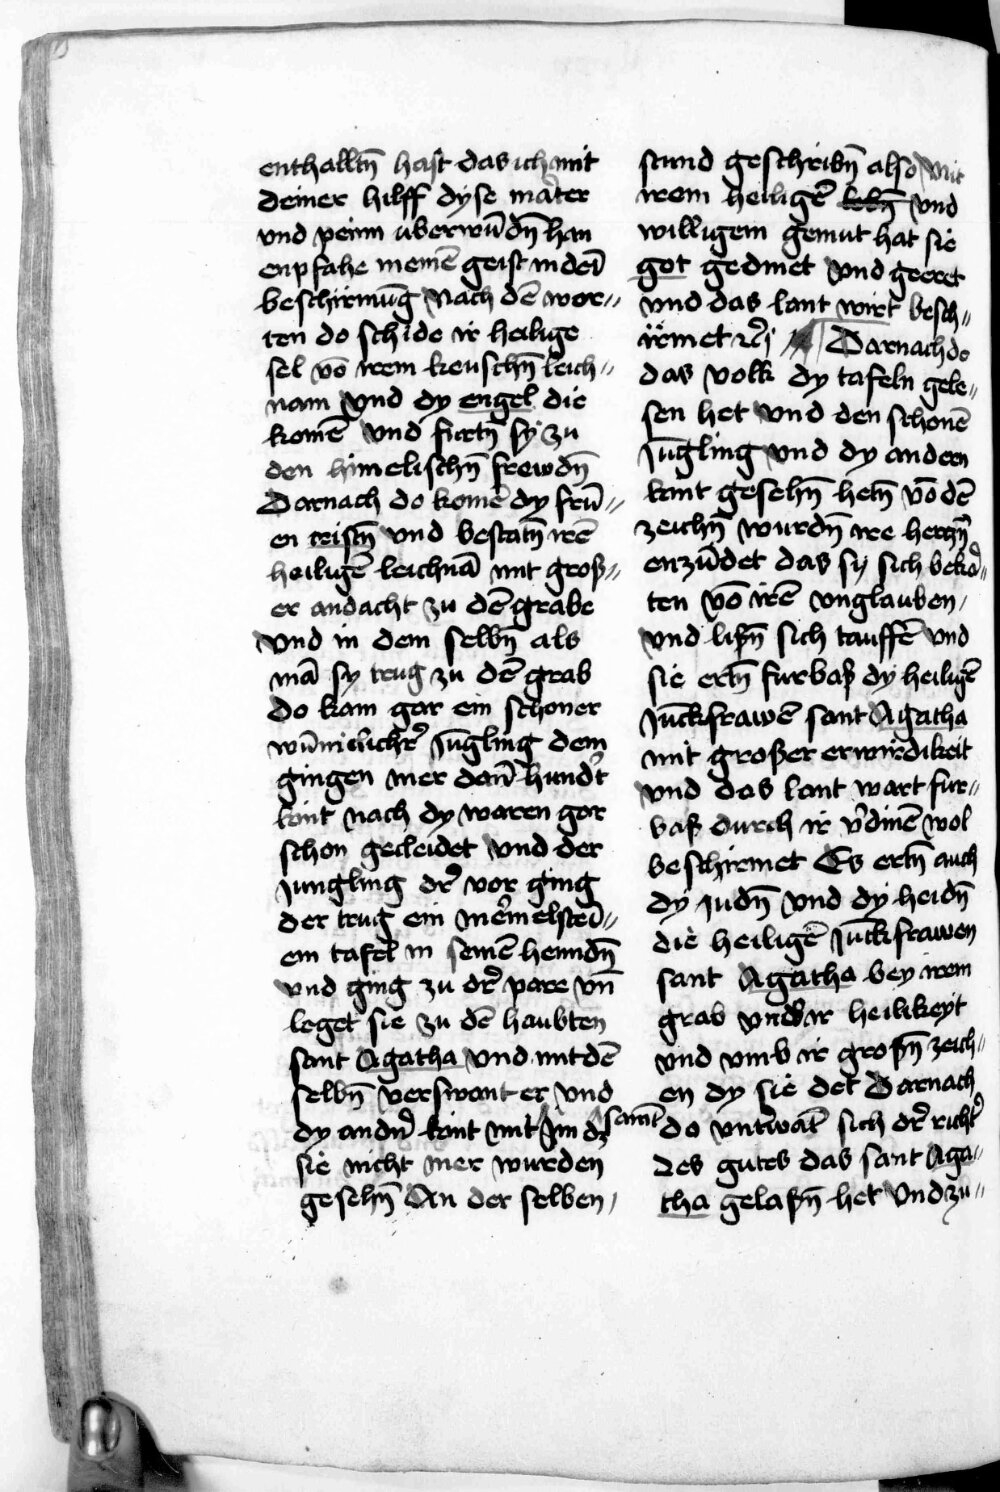 enthalltñ hast das ich mit
deiner hilff dyse mater
vnd peinn uberwūdñ han
enpfahe meinē geist in deī
beschirmūg Nach dē wor„
ten do schide ir heilige
sel vō irem keuschñ leich„
nam Vnd dy engel die
komē Vnd furtñ sy zu
den himelischñ frewdñ
Darnach do komē dy frū„
en cristñ vnd bestatñ irē
heiligē leichnā mit groß„
er andacht zu dē grabe
Vnd in dem selbñ als
mā sy trug zu dē grab
do kam gar ein schoner
wūnicliche͛ Jūgling dem
gingen mer dañ hunde͛t
kint nach dy waren gar
schon gecleidet Vnd der
Jungling de͛ vor ging
der trug ein me͛melstei„
ein tafel in seinē henndñ
vnd ging zu de͛ pare vñ
leget sie zu dē haubten
sant Agatha Vnd mit dē
selbñ verswant er Vnd
dy ande͛ kint mit Im dz samt
sie nicht mer wurden
gesehñ An der selben
stund geschribñ also Mit
irem heilige͛ lebñ Vnd
willigem gemut hat sie
got gedinet Vnd geeret
Vnd das lant wirt besch„
irmet ꝛc͛ Darnach do
das volk dy tafeln gele„
sen het Vnd den schonē
Jūgling Vnd dy andern
kint gesehñ hetñ vō dē
zeichñ wurdñ ire hertzñ
enzūdet das sy sich beka͛„
ten vō irē vnglauben,
Vnd lißñ sich tauffē Vnd
sie ertñ furbaß dy heiligē
Jūckfrawē sant Agatha
mit großer erwirdikeit
Vnd das lant wart fur„
baß durch ir v͛dinē wol
beschirmet Es ertñ auch
dy Judñ Vnd dy heidñ
die heiligē Jūckfrawen
sant Agatha bey irem
grab vmb ir heilikeyt
Vnd vmb ir großñ zeich„
en dy sie det Darnach
do vnte͛wāt sich de͛ richte͛
des gutes das sant Aga„
tha gelaßñ het Vnd zu„